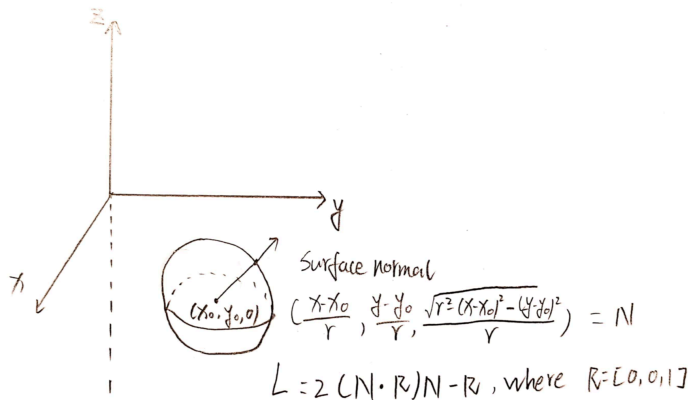 z
y
x
Surface normal
(x₀, y₀, 0)
(\frac{x-x₀}{r}, \frac{y-y₀}{r}, \frac{\sqrt{r²-(x-x₀)²-(y-y₀)²}}{r}) = N
L = 2(N·R)N-R, where R=[0,0,1]